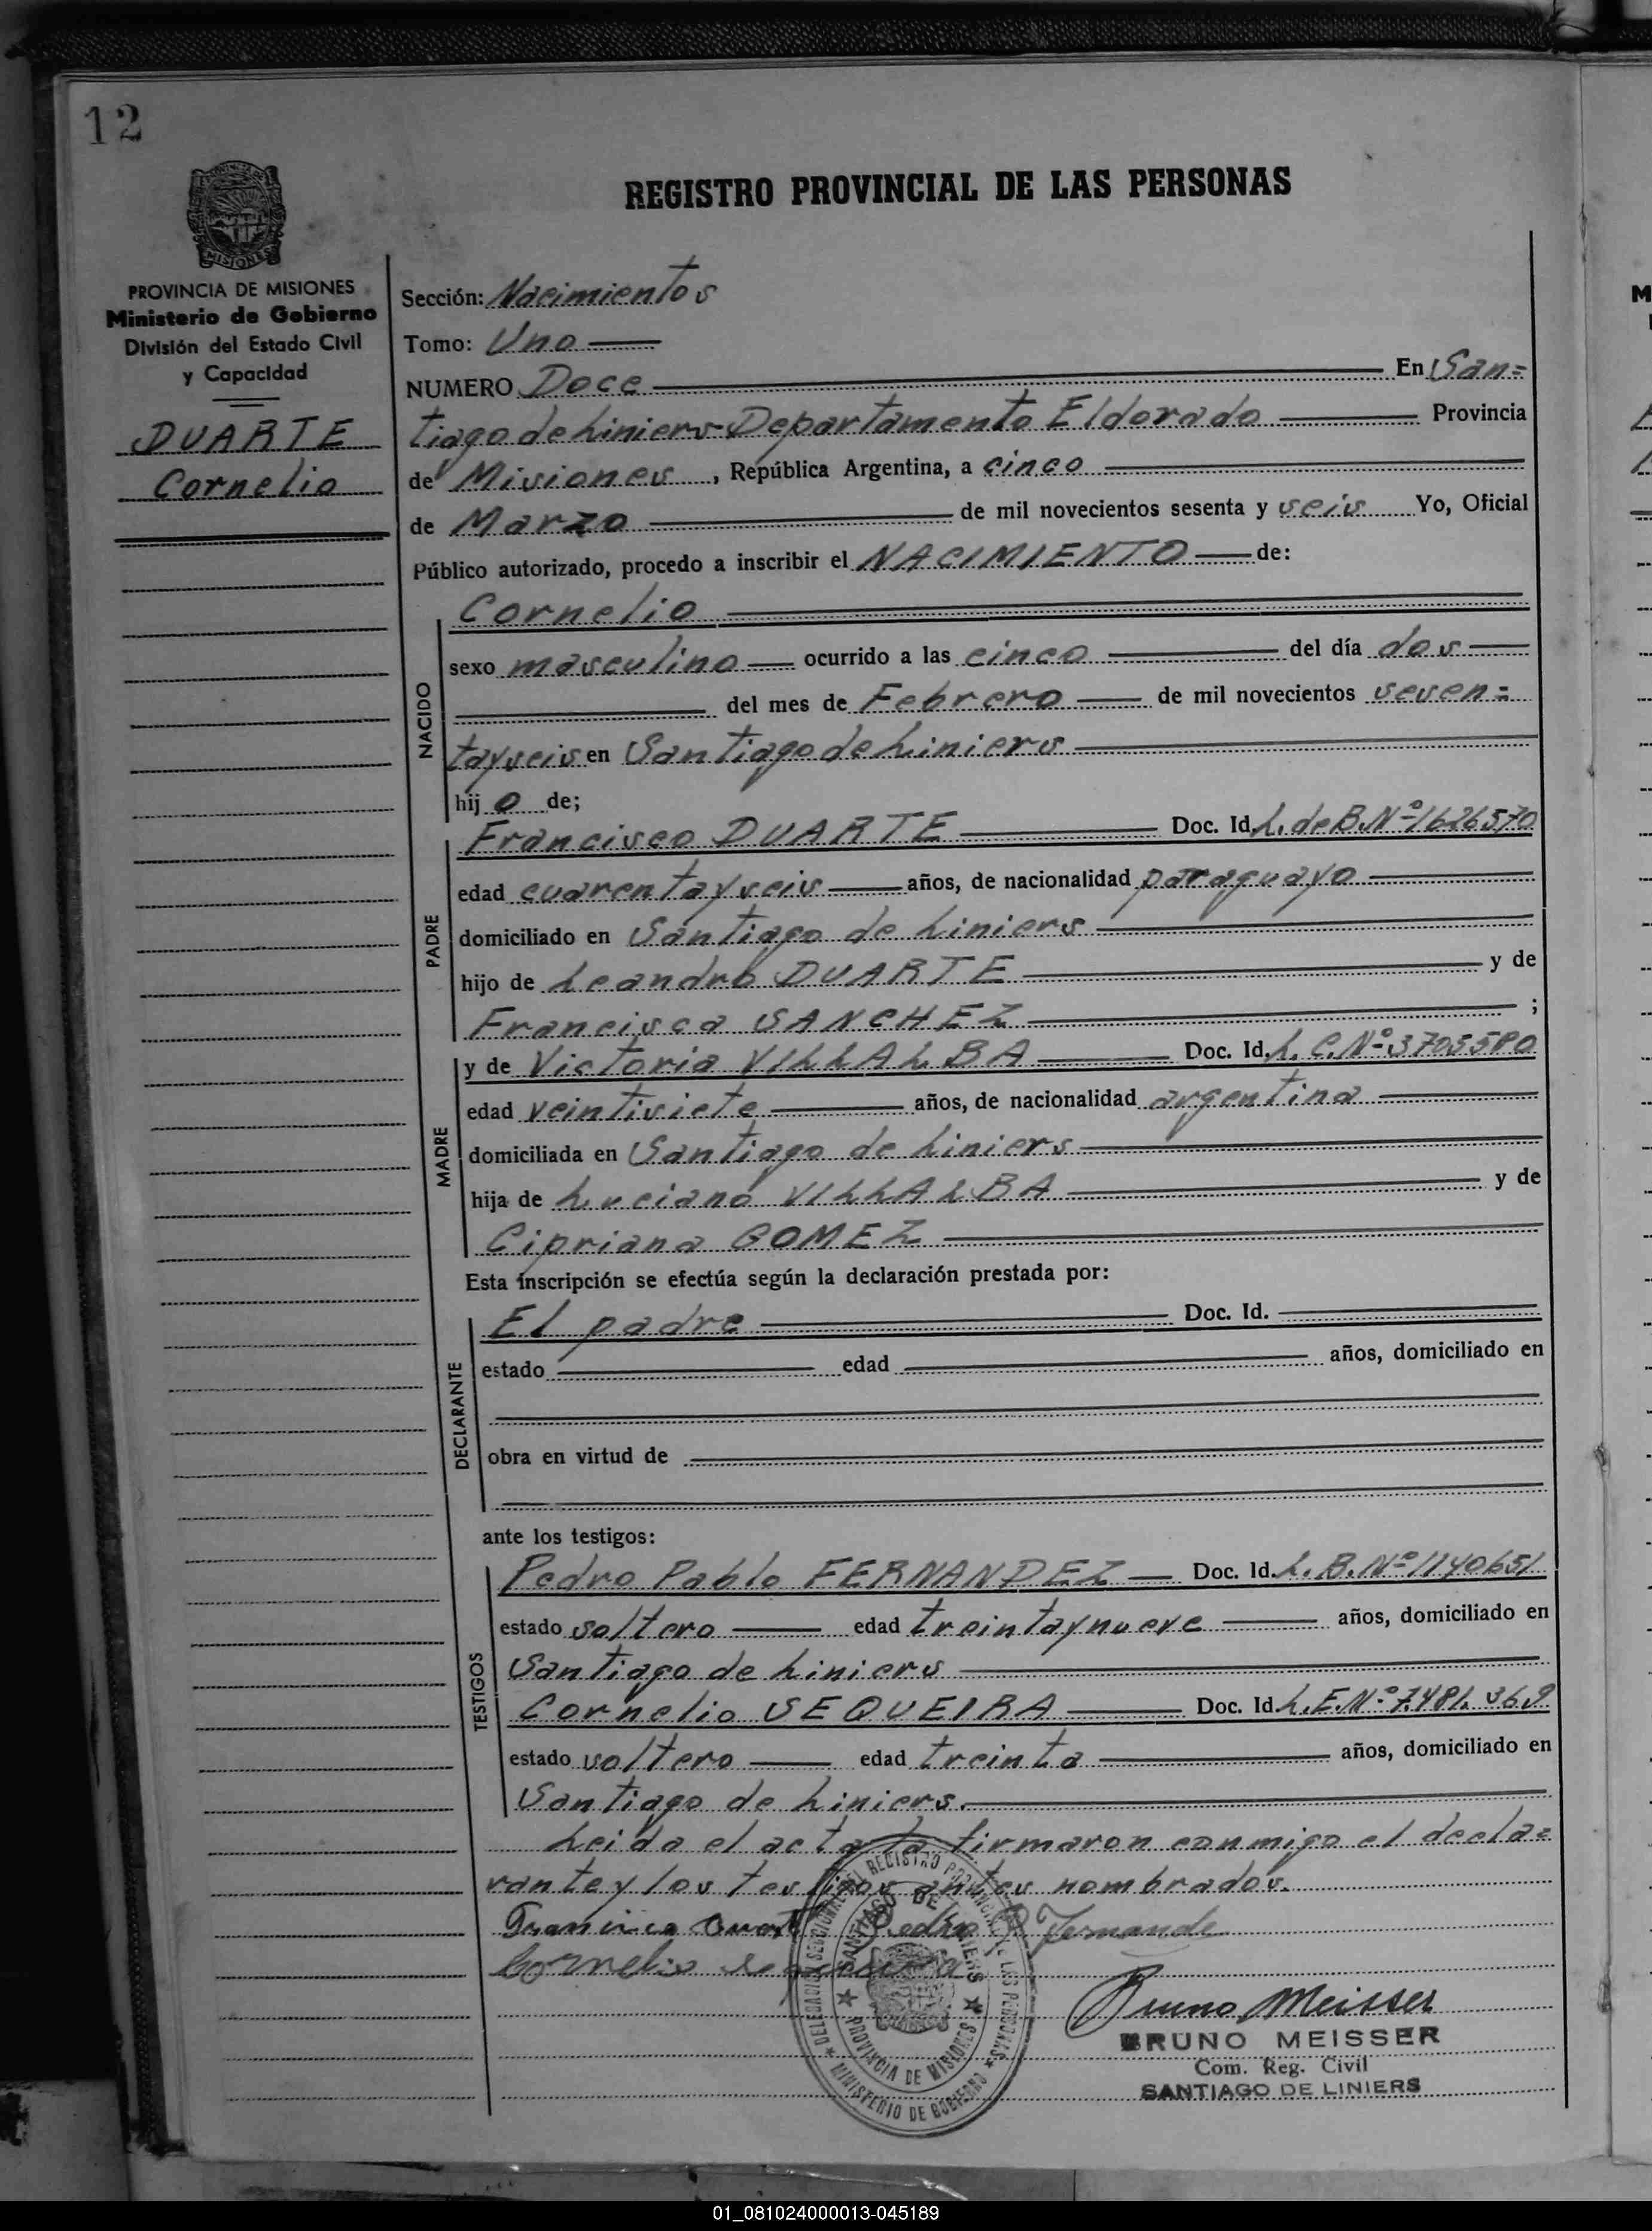 12
MISIONES
REGISTRO PROVINCIAL DE LAS PERSONAS
PROVINCIA DE MISIONES
Ministerio de Gobierno
División del Estado Civil
y Capacidad
DUARTE
Cornelio
Sección: Nacimientos
Tomo: Uno
NUMERO Doce En San=
tiago de Liniers Departamento Eldorado Provincia
de Misiones, República Argentina, a cinco
de Marzo de mil novecientos sesenta y seis Yo, Oficial
Público autorizado, procedo a inscribir el NACIMIENTO de:
NACIDO
Cornelio
sexo masculino ocurrido a las cinco del día dos
del mes de Febrero de mil novecientos sesen=
tayseis en Santiago de Liniers
hijo de;
PADRE
Francisco DUARTE Doc. Id. L. de B. Nº 1626570
edad cuarentayseis años, de nacionalidad paraguayo
domiciliado en Santiago de Liniers
hijo de Leandro DUARTE y de
Francisca SANCHEZ ;
MADRE
y de Victoria VILLALBA Doc. Id. L. C. Nº 3705580
edad veintisiete años, de nacionalidad argentina
domiciliada en Santiago de Liniers
hija de Luciano VILLALBA y de
Cipriana GOMEZ
Esta inscripción se efectúa según la declaración prestada por:
DECLARANTE
El padre Doc. Id.
estado edad años, domiciliado en
obra en virtud de
ante los testigos:
TESTIGOS
Pedro Pablo FERNANDEZ Doc. Id. L. B. Nº 1140651
estado soltero edad treintaynueve años, domiciliado en
Santiago de Liniers
Cornelio SEQUEIRA Doc. Id. L. E. Nº 7.481.369
estado soltero edad treinta años, domiciliado en
Santiago de Liniers.
Leida el acta la firmaron conmigo el decla=
rante y los testigos antes nombrados.
Francisco Duart Pedro P. Fernande
Cornelio
DELEGACION SECCIONAL DEL REGISTRO PROVINCIAL DE LAS PERSONAS
SANTIAGO DE LINIERS
PROVINCIA DE MISIONES
MINISTERIO DE GOBIERNO
Bruno Meisser
BRUNO MEISSER
Com. Reg. Civil
SANTIAGO DE LINIERS
01_081024000013-045189